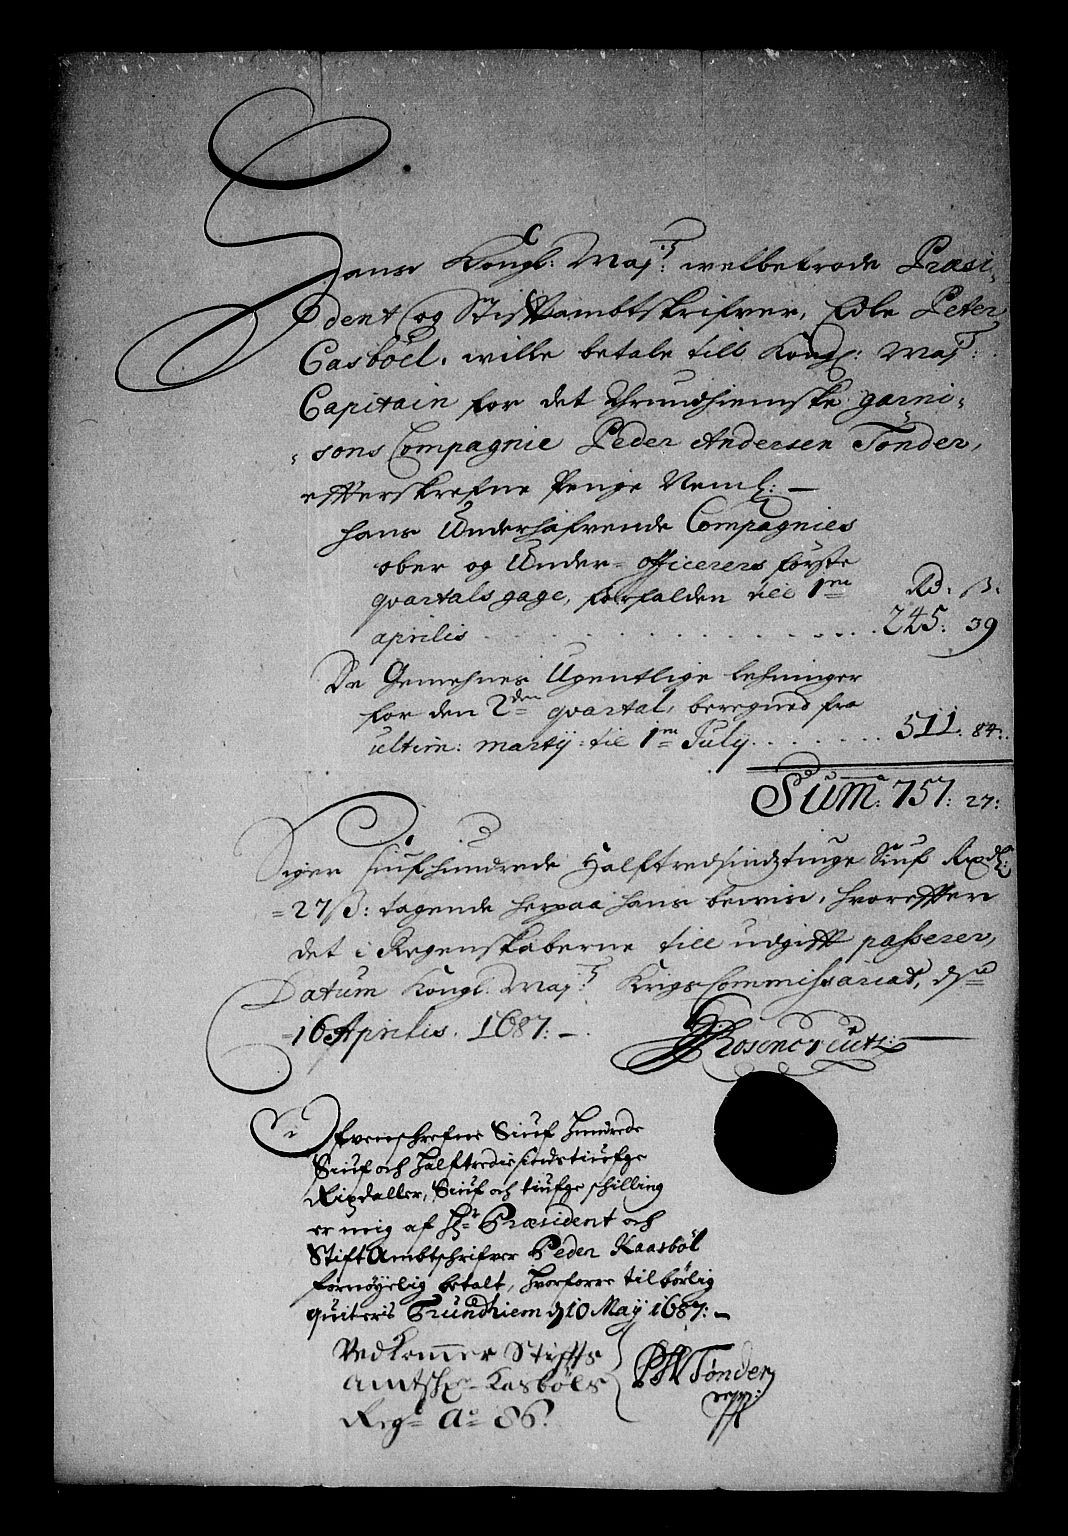 Hans Kongl: Maj:ts welbetrode Præsi-
dent og Stiftambtskrifver, Edle Peter
Casböel, wille betale till Kongl: Maj:ts
Capitain for det Thrundhiemske garni-
sons Compagnie Peder Andersen Tönder,
efferskrefne Penge Neml: —
hans Underhafvende Compagnies
ober og Under- officerers förste
qvartals gage, forfalden till 1me Rd: ß:
aprilis . . . . . . . . . . 245: 39
De Gemehnes Ugentlige lehninger
for den 2den qvartal, beregned fra
ultim: martij: til 1me July . . . . . . 511: 84:
Suma: 757: 27:
Siger siufhundrede halftredsindztiuge Siuf Rixdl:
27 ß: tagende herpaa hans beviis, hvorefter
det i Regenskaberne till udgift passerer,
Datum Kongl: Maj:ts Krigs Commissariat, ds
16 Aprilis. 1687: —
Rosencreutz:
Ofvenschrefne Siuf Hundrede
Siuf och halftredie sindstiufge
Rixdaller, Siuf och tiufge schilling
er mig af Hr Præsident och
StiftAmbtschrifver Peder Kaasböl
fornöyelig betalt, hvorforre tilbörlig
quiteris Trundhiem d 10 Maij 1687: —
Vedkommer Stiffts
amtschr Kasböls
Regn Ao 86.
PA Tønder
mpp: